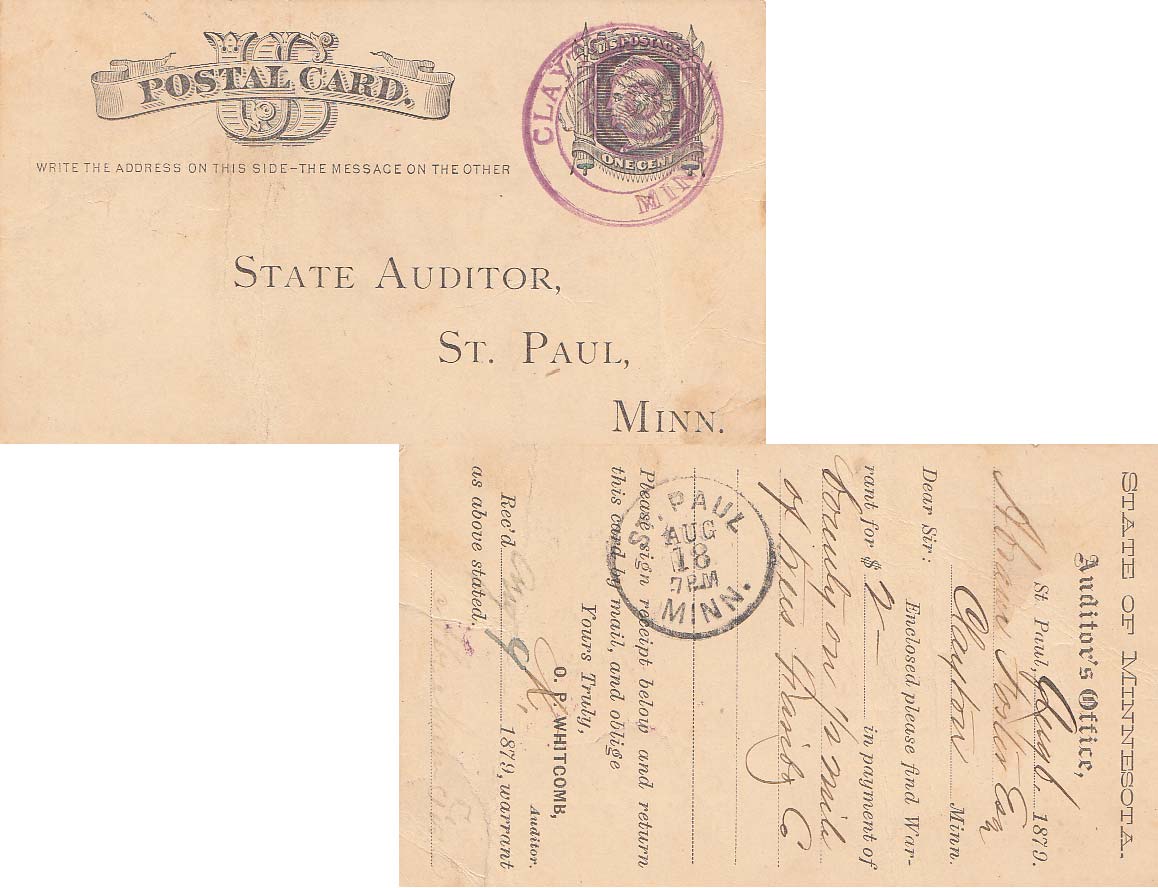 US
POSTAL CARD.
U.S. POSTAGE
ONE CENT
CLAY
MIN
WRITE THE ADDRESS ON THIS SIDE–THE MESSAGE ON THE OTHER
STATE AUDITOR,
ST. PAUL,
MINN.
STATE OF MINNESOTA.
Auditor's Office,
St. Paul, Aug 6 1879.
Foster Esq
Clayton Minn.
Dear Sir:
Enclosed please find War-
rant for $ 2 — in payment of
bounty on ½ mile
of trees
Please sign receipt below and return
this card by mail, and oblige
Yours Truly,
O. P. WHITCOMB,
Auditor.
Rec'd Aug 1879, warrant
as above stated.
ST. PAUL
AUG
18
7PM
MINN.